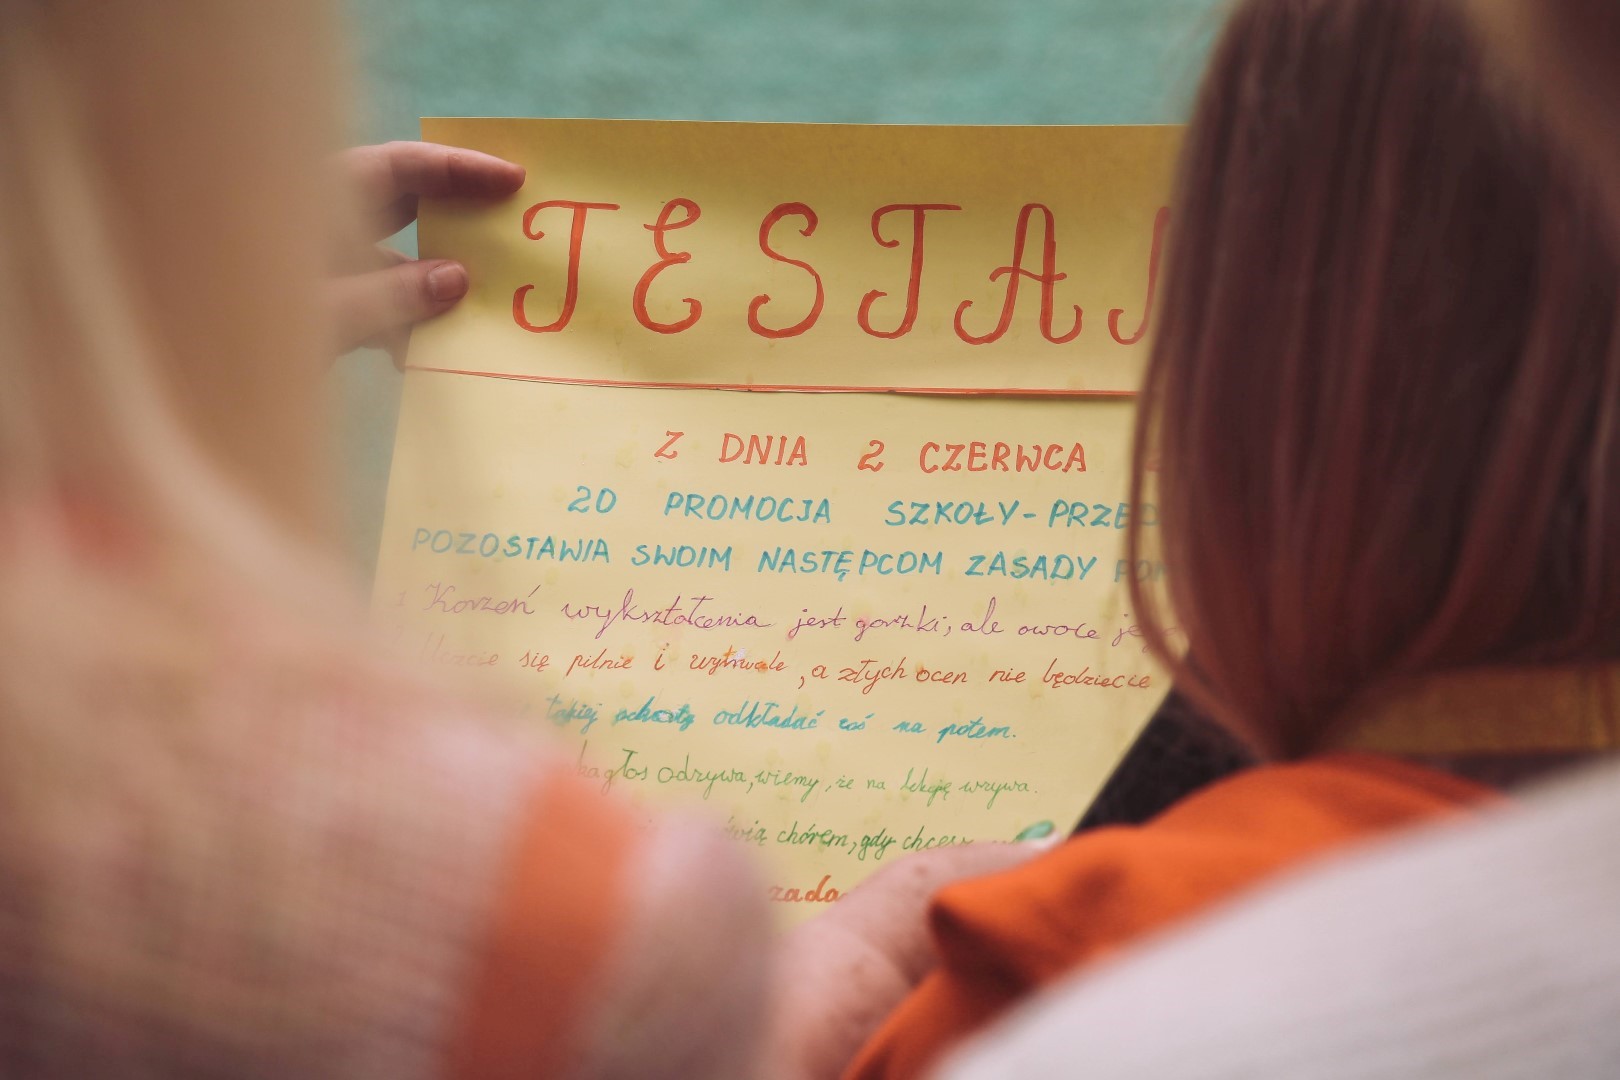 TESTA
Z DNIA 2 CZERWCA
20 PROMOCJA SZKOŁY-PRZED
POZOSTAWIA SWOIM NASTĘPCOM ZASADY
1 Korzeń wykształcenia jest gorzki, ale owoce
się pilnie i wytrwale, a złych ocen nie będziecie
takiej szkoły odkładać coś na potem.
głos odzywa, wiemy, że na lekcję wzywa.
chórem, gdy chcesz
zada